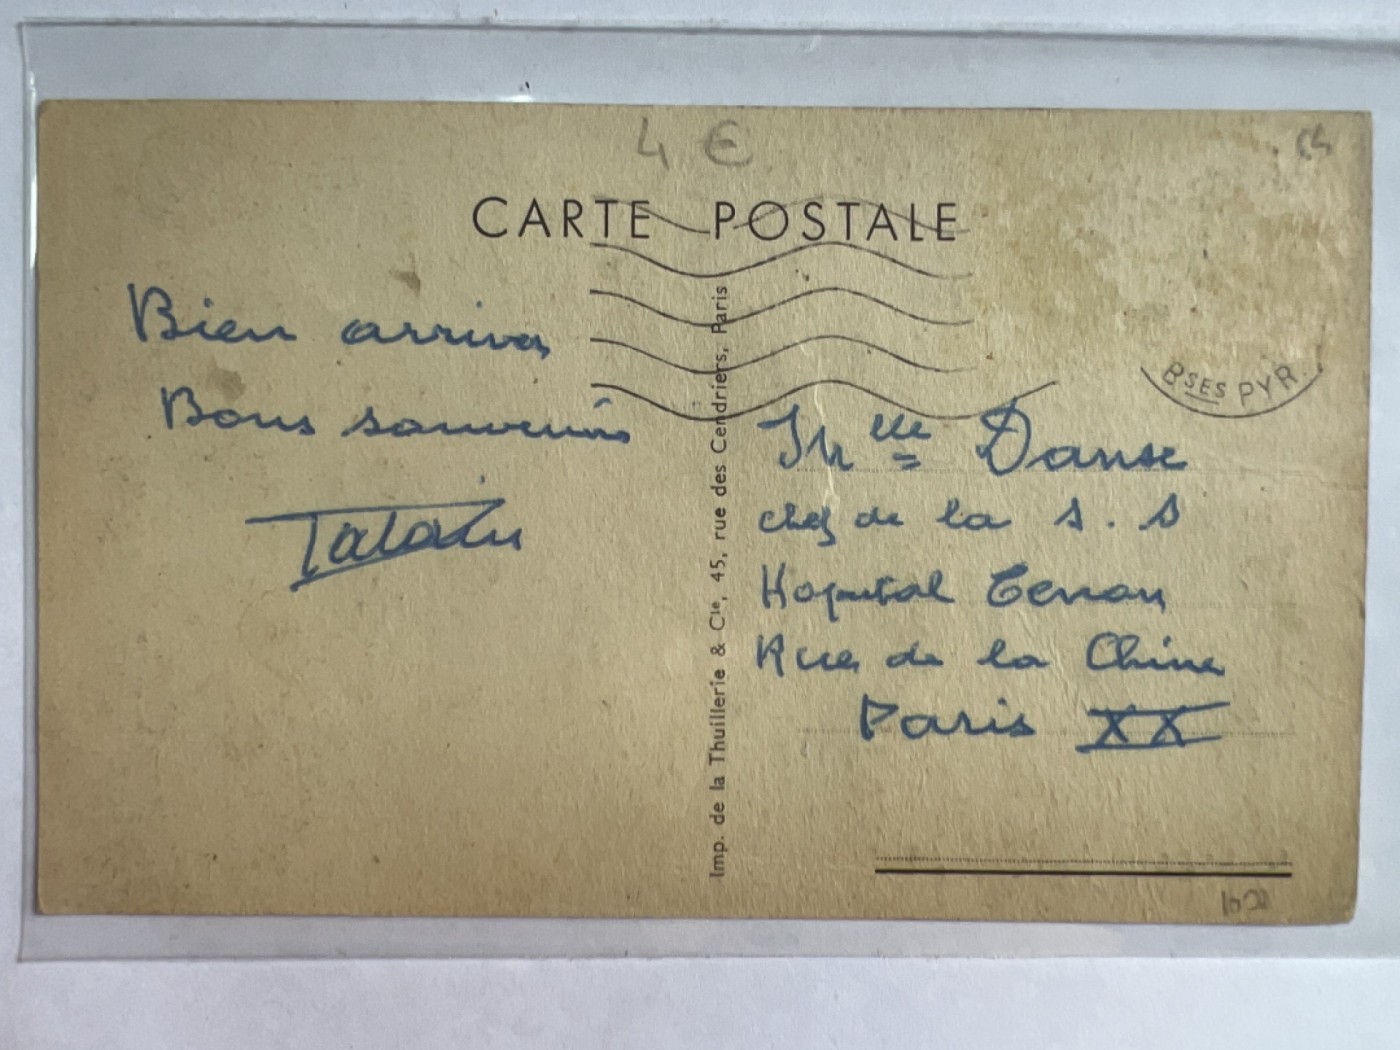 4 €
64
CARTE POSTALE
Bien arrivée
Bons souvenirs
Imp. de la Thuillerie & Cie, 45, rue des Cendriers, Paris
BSES PYR.
Mlle Danse
chef de la S. S
Hopital Tenon
Rue de la Chine
Paris XX